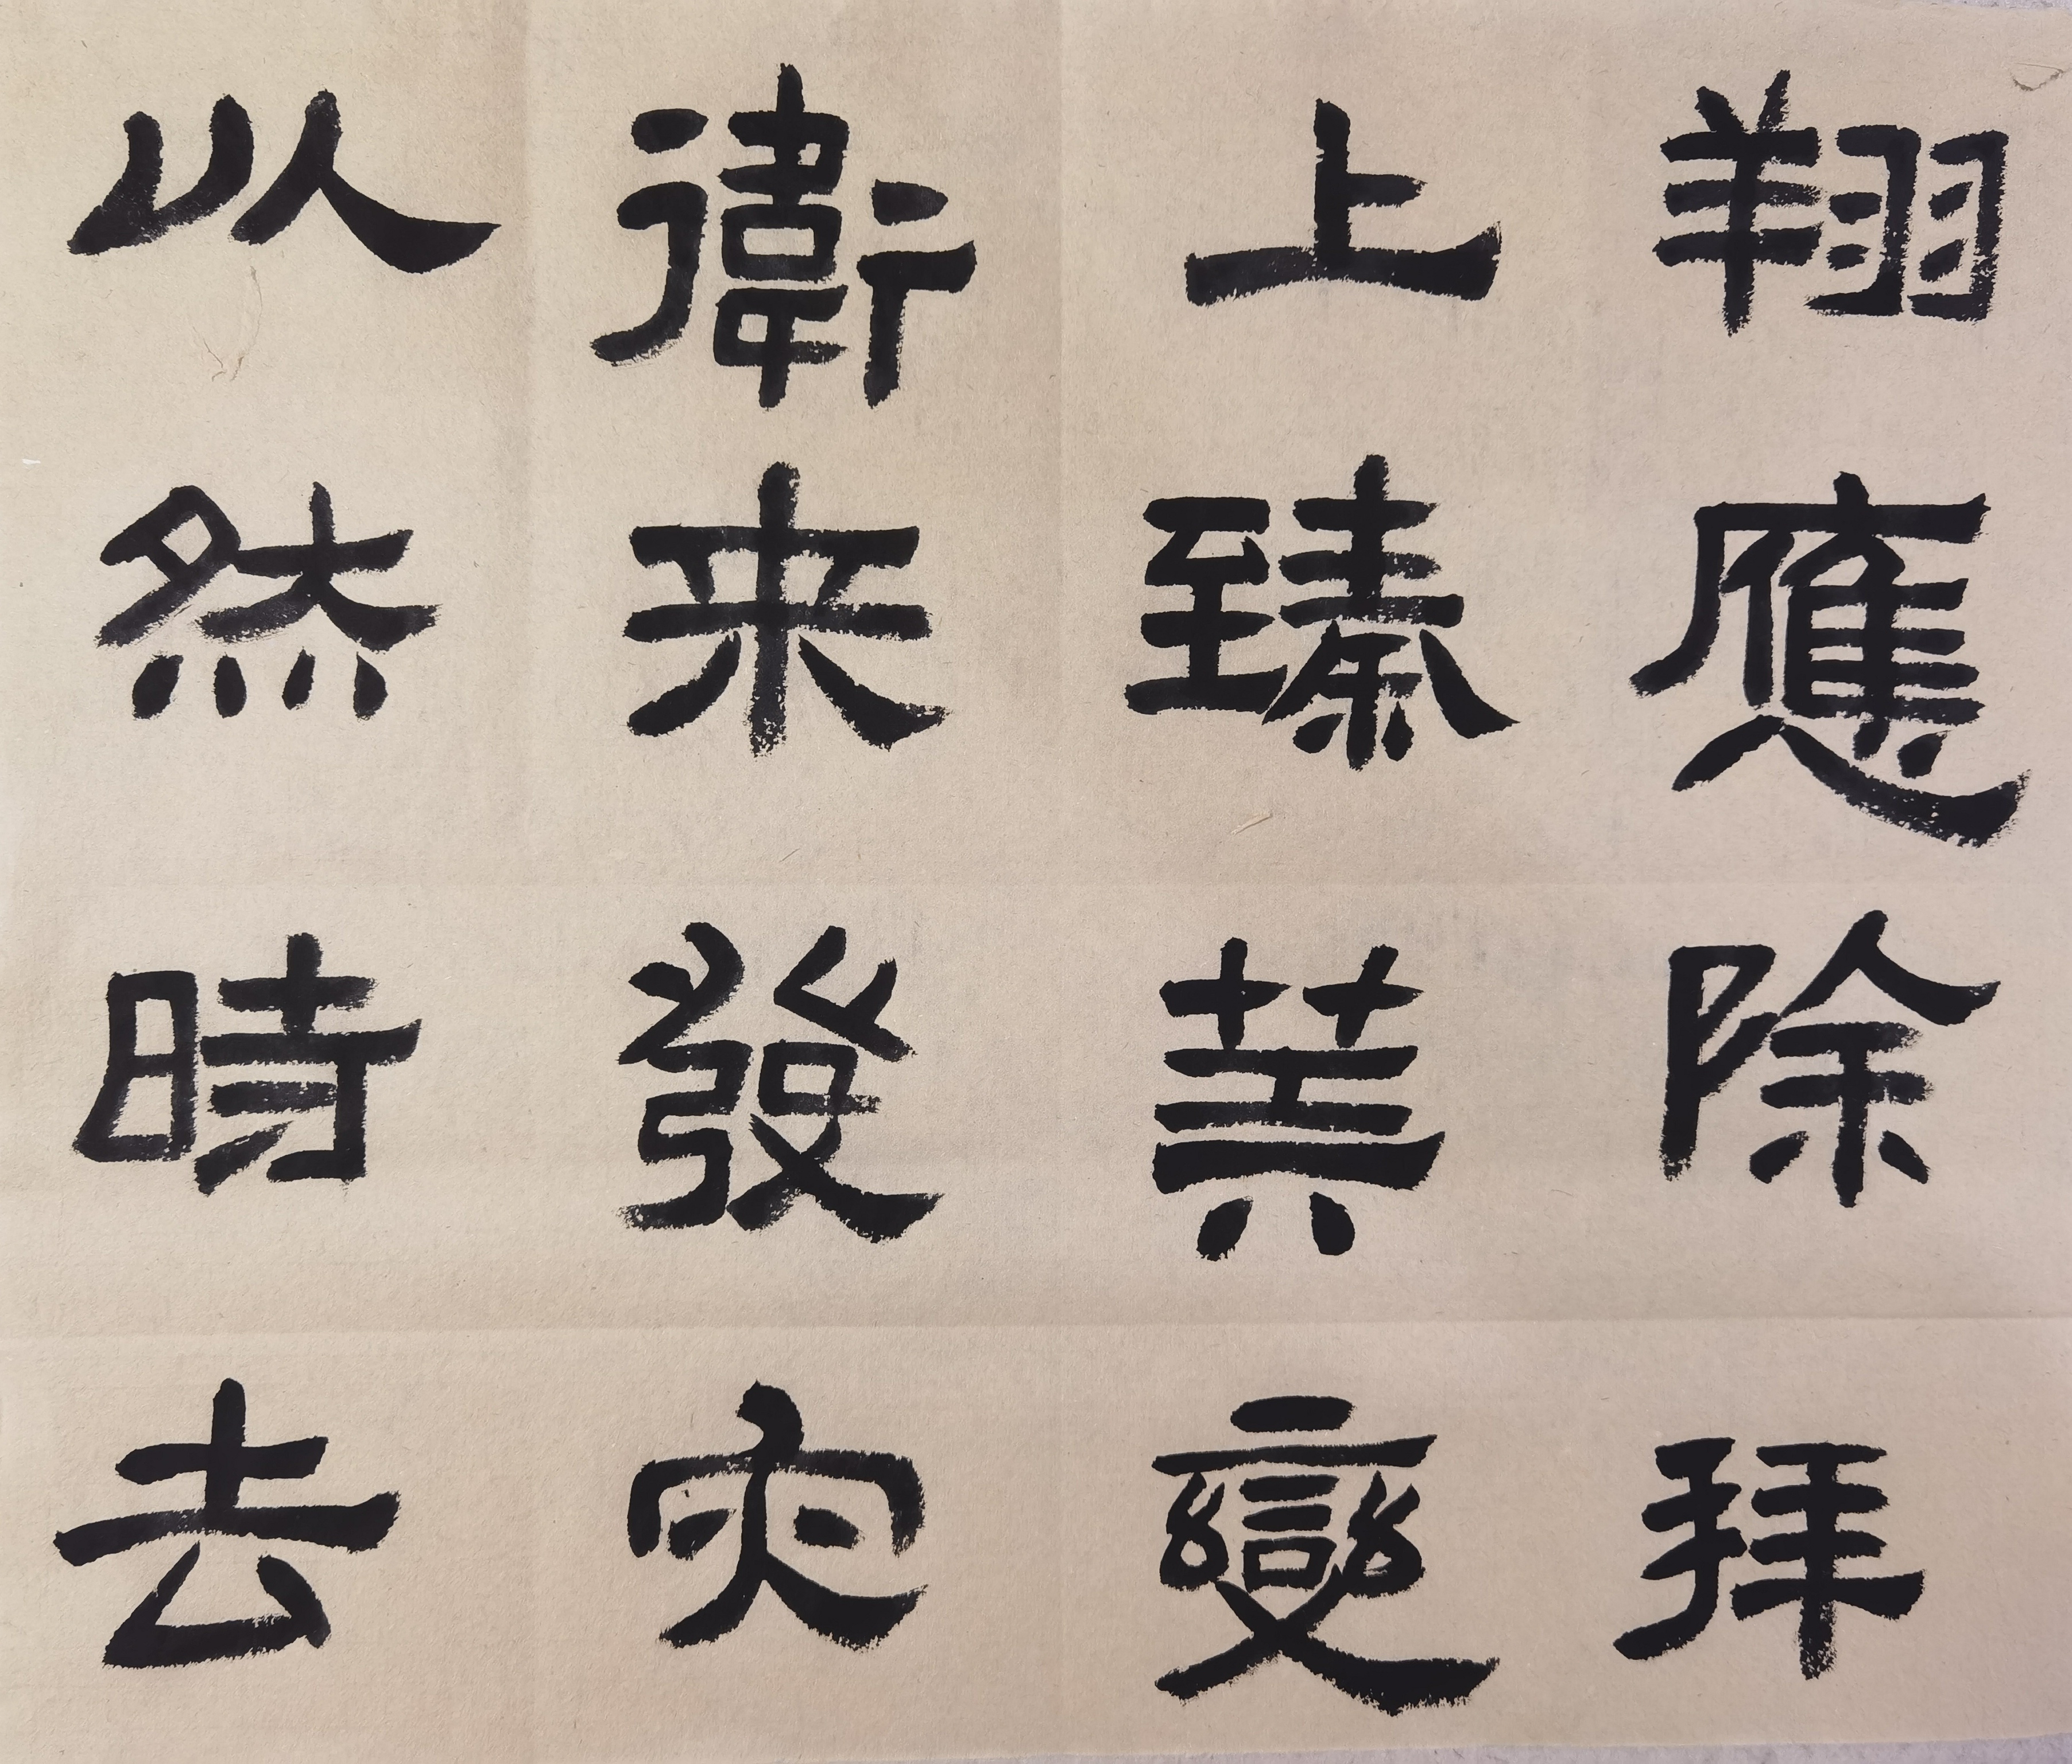 翔應除拜
上臻變
衛来發灾
以然時去